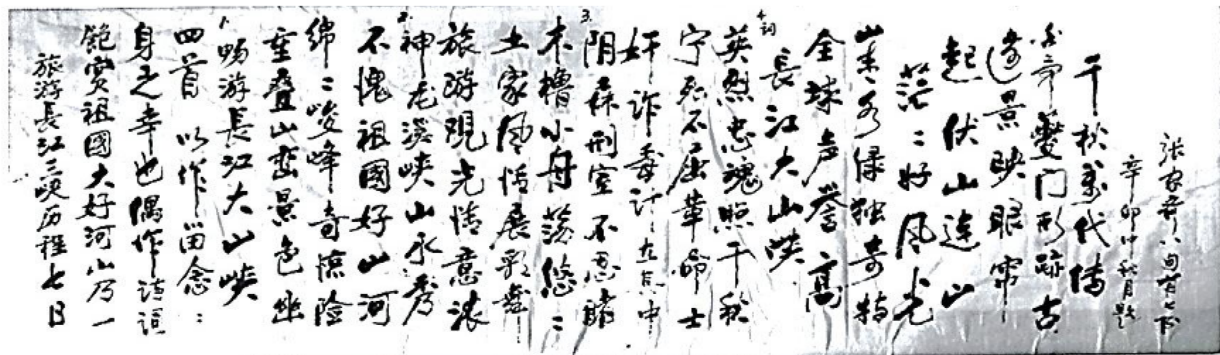 旅游長江三峡历程七日
饱赏祖國大好河山乃一
身之幸也偶作诗词
四首 以作留念：
1.畅游長江大山峡
重叠山峦景色幽
绵々峻峰奇怪险
不愧祖國好山河
2.神农溪峡山水秀
旅游观光情意浓
土家风情展歌舞
木橹小舟荡悠々
3.阴森刑室不忍睹
奸诈毒计在其中
宁死不屈革命士
英烈忠魂照千秋
4.词
長江大山峡
全球声誉高
山青水绿独奇特
茫々好风光
起伏山连山
边景映眼帘
奇夔门形跡古
千秋万代传
辛卯仲秋月题
张家奇八旬有七